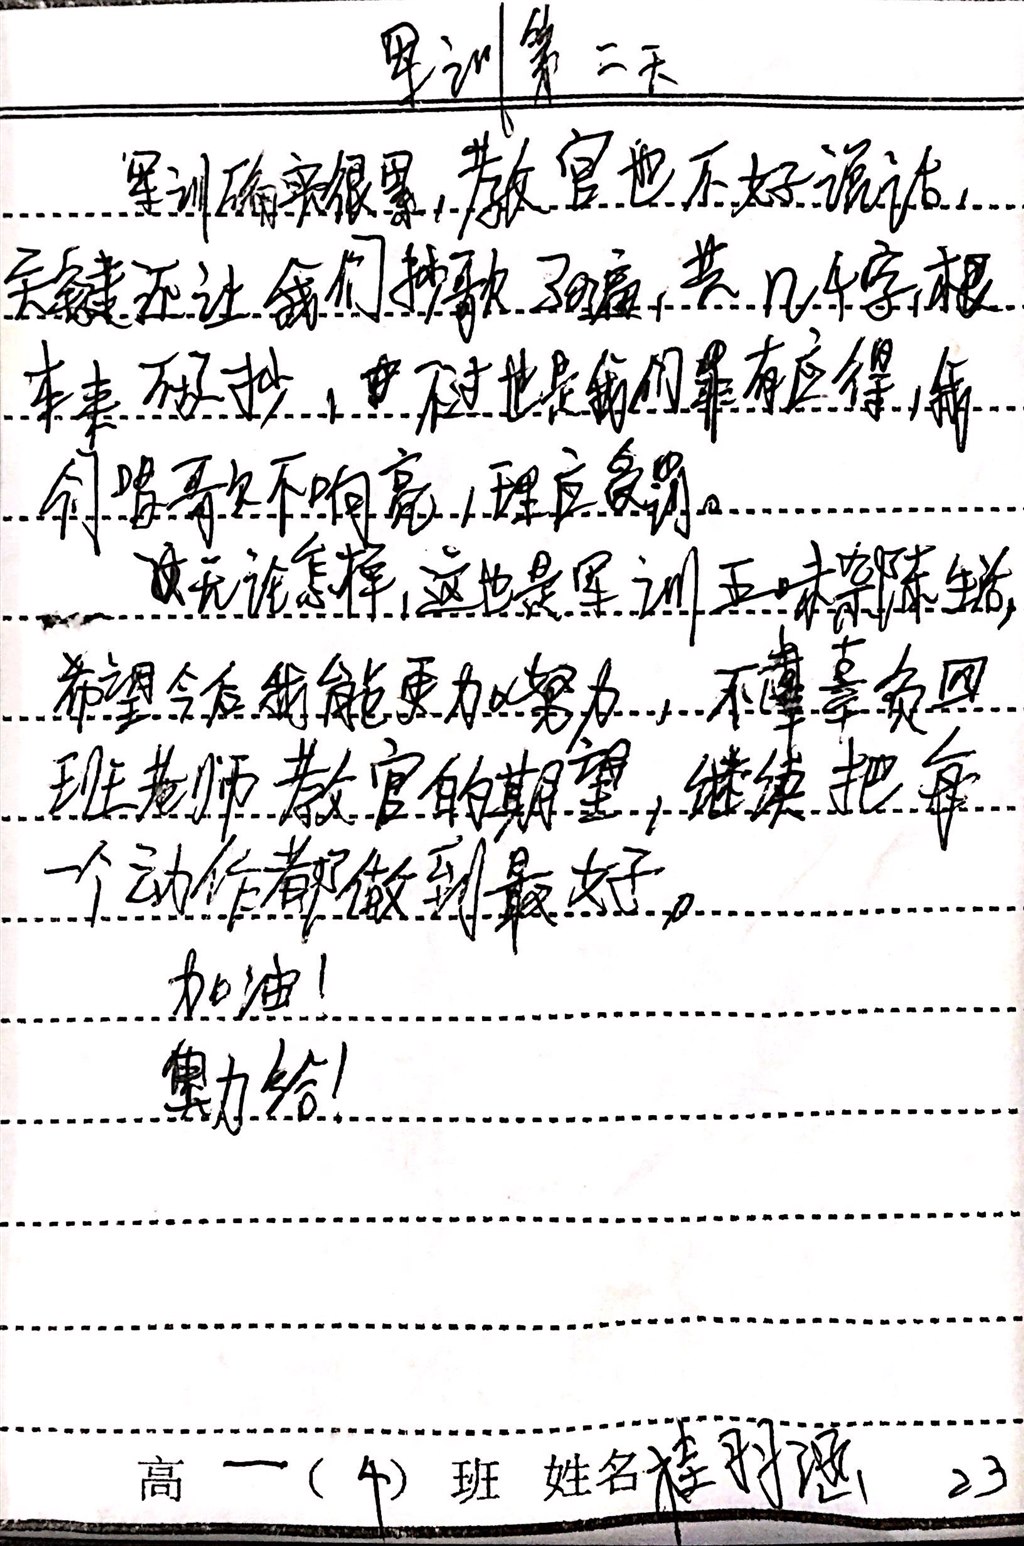 军训第二天
军训确实很累，教官也不好说话，
关键还让我们抄歌 遍，共几千字，根
本来不及抄，不过也是我们罪有应得，我
们唱歌不响亮，理应受罚。
无论怎样，这也是军训五味杂陈生活，
希望今后我能更加努力，不辜负四
班老师教官的期望，继续把每
一个动作都做到最好。
加油！
奥力给！
高一（4）班 姓名桂羽涵 23